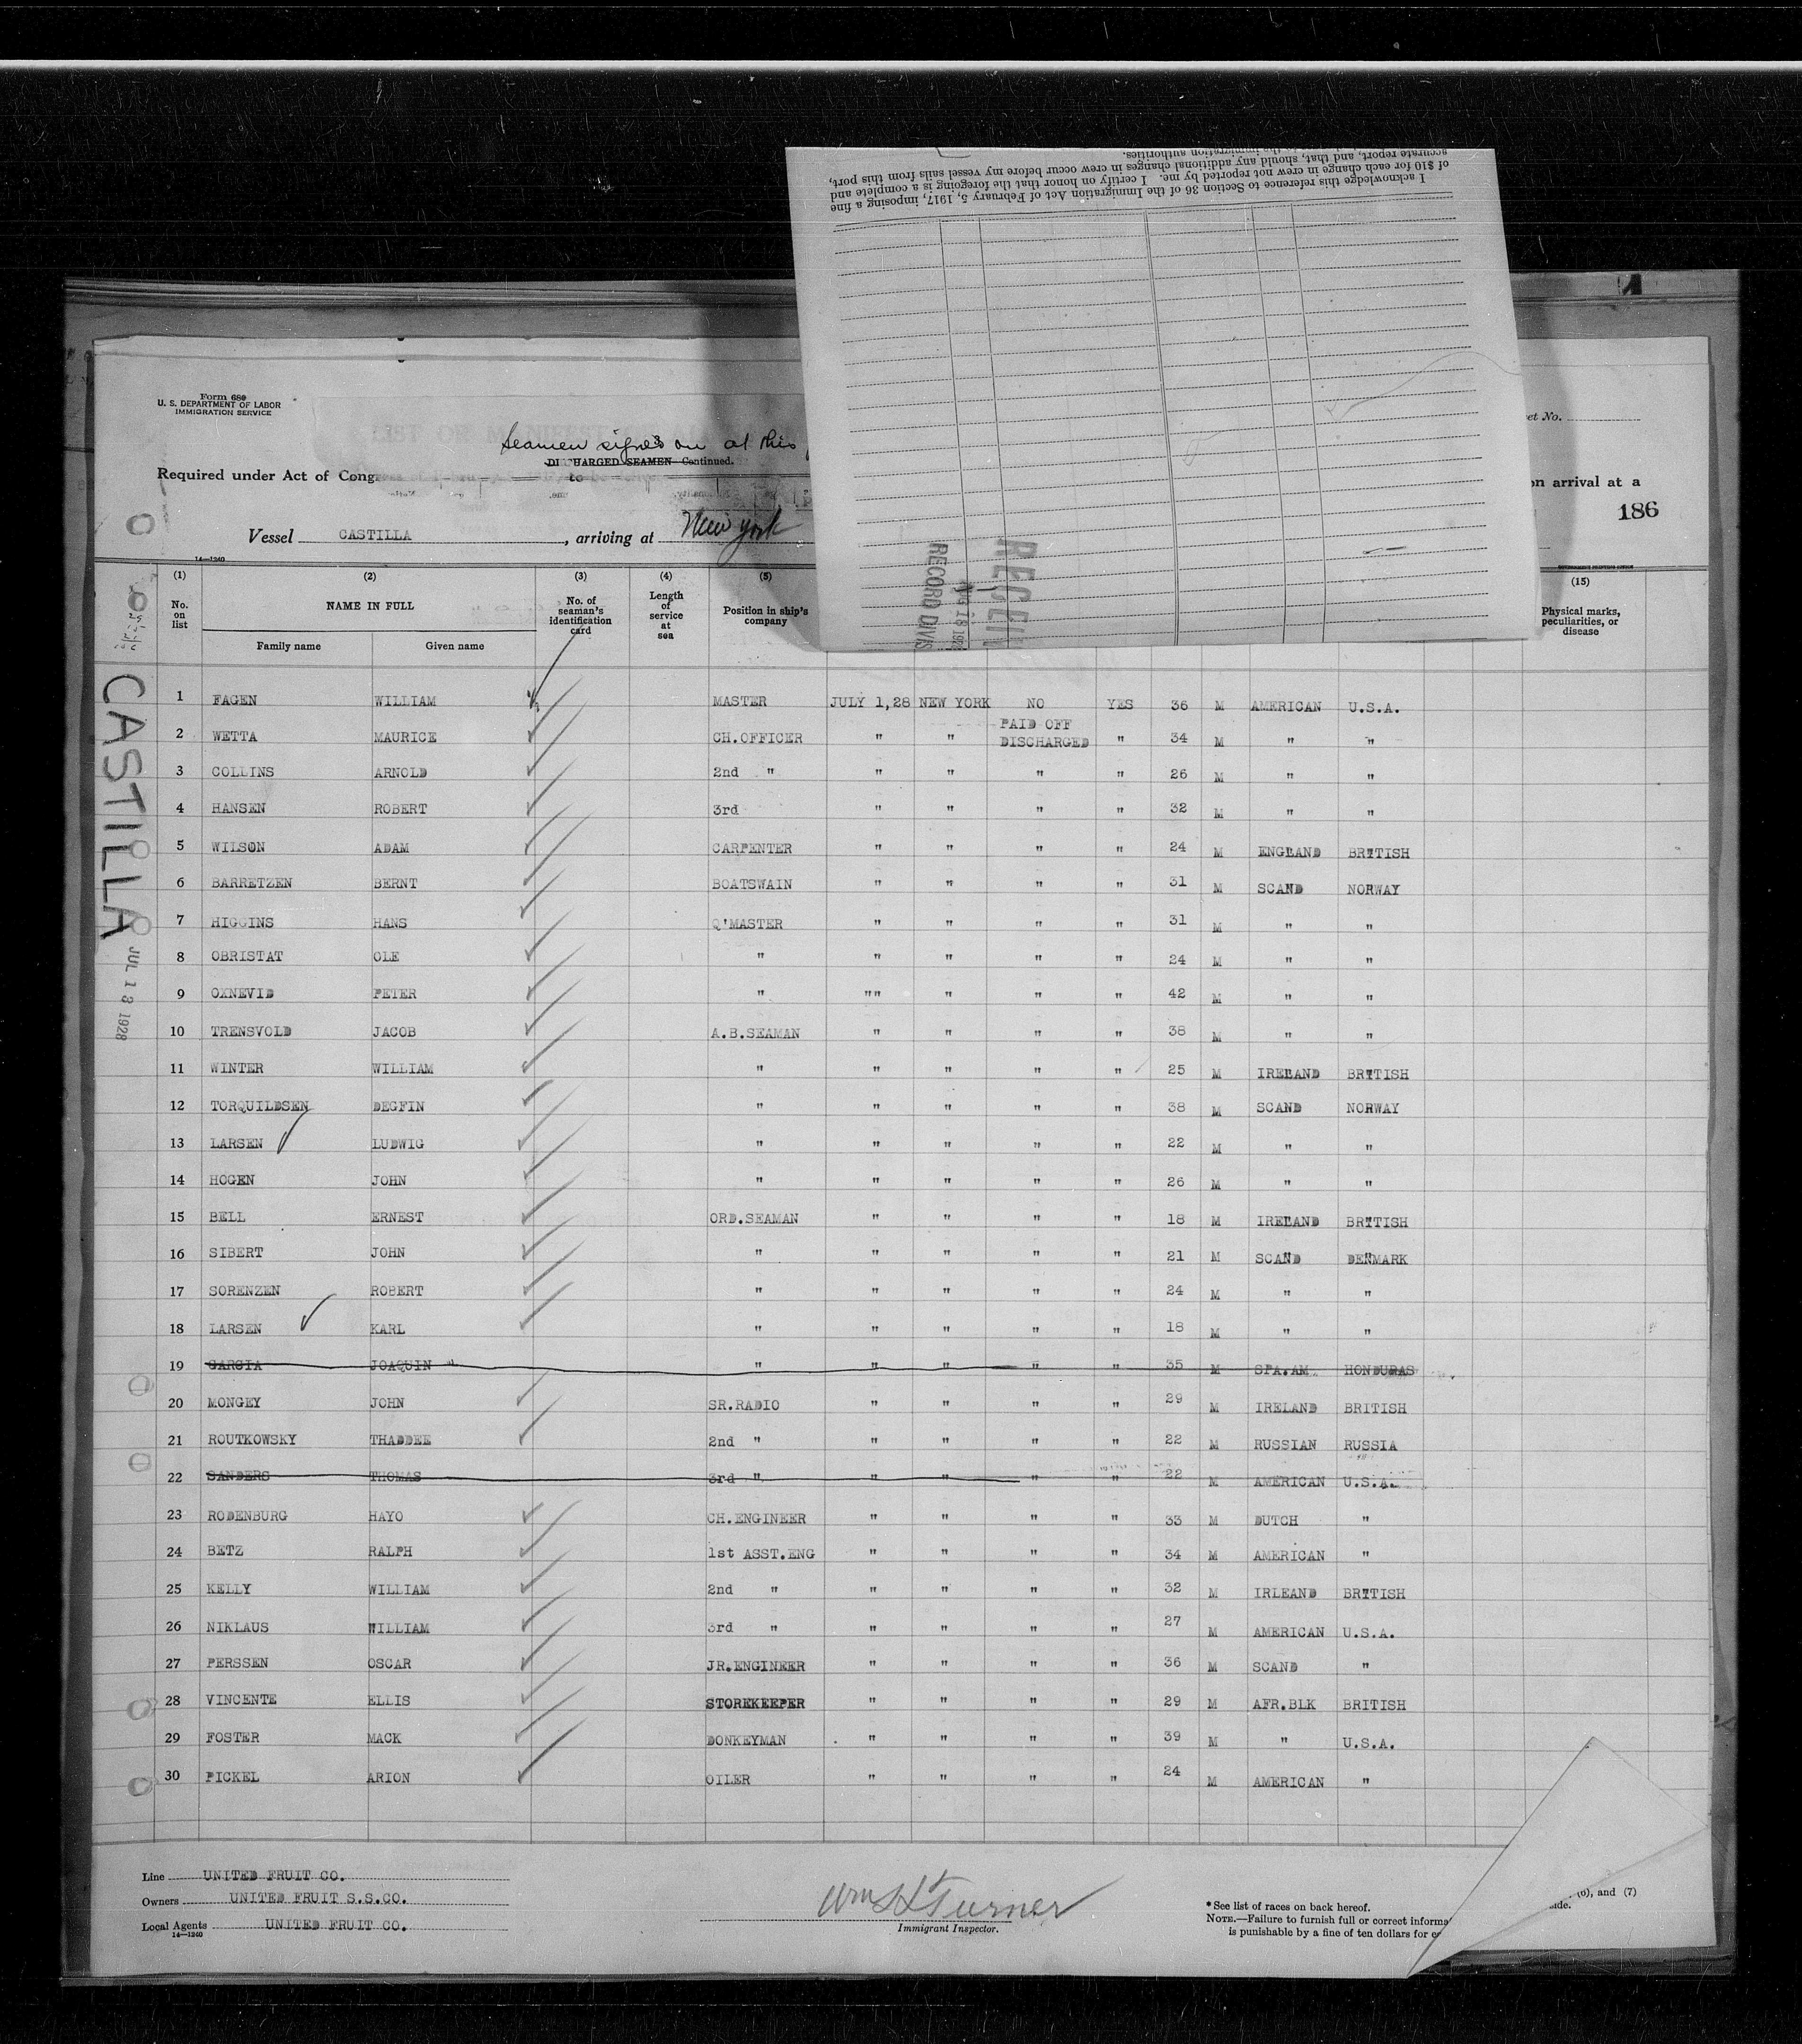 accurate report, and that, should any additional changes in crew occur before my vessel sails from this port,
of $10 for each change in crew not reported by me. I certify on honor that the foregoing is a complete and
I acknowledge this reference to Section 36 of the Immigration Act of February 5, 1917, imposing a fine
RECORD DIVIS
RECEIV
Form 680
U. S. DEPARTMENT OF LABOR
IMMIGRATION SERVICE
et No.
Seamen signed on at this
DISCHARGED SEAMEN—Continued.
Required under Act of Cong
on arrival at a
186
Vessel CASTILLA, arriving at New york
14—1240
(1) (2) (3) (4) (5) (15)
No. on list NAME IN FULL No. of seaman's identification card Length of service at sea Position in ship's company Physical marks, peculiarities, or disease
Family name Given name
CASTILLA
JUL 13 1928
1 FAGEN WILLIAM MASTER JULY 1,28 NEW YORK NO YES 36 M AMERICAN U.S.A.
2 WETTA MAURICE CH.OFFICER " " PAID OFF DISCHARGED " 34 M " "
3 COLLINS ARNOLD 2nd " " " " " 26 M " "
4 HANSEN ROBERT 3rd " " " " 32 M " "
5 WILSON ADAM CARPENTER " " " " 24 M ENGLAND BRITISH
6 BARRETZEN BERNT BOATSWAIN " " " " 31 M SCAND NORWAY
7 HIGGINS HANS Q'MASTER " " " " 31 M " "
8 OBRISTAT OLE " " " " " 24 M " "
9 OXNEVID PETER " "" " " " 42 M " "
10 TRENSVOLD JACOB A.B.SEAMAN " " " " 38 M " "
11 WINTER WILLIAM " " " " " 25 M IRELAND BRITISH
12 TORQUILDSEN DEGFIN " " " " " 38 M SCAND NORWAY
13 LARSEN LUDWIG " " " " " 22 M " "
14 HOGEN JOHN " " " " " 26 M " "
15 BELL ERNEST ORD.SEAMAN " " " " 18 M IRELAND BRITISH
16 SIBERT JOHN " " " " " 21 M SCAND DENMARK
17 SORENZEN ROBERT " " " " " 24 M " "
18 LARSEN KARL " " " " " 18 M " "
19 GARCIA JOAQUIN " " " " " 35 M SPA.AM HONDURAS
20 MONGEY JOHN SR.RADIO " " " " 29 M IRELAND BRITISH
21 ROUTKOWSKY THADDEE 2nd " " " " " 22 M RUSSIAN RUSSIA
22 SANDERS THOMAS 3rd " " " " " 22 M AMERICAN U.S.A.
23 RODENBURG HAYO CH.ENGINEER " " " " 33 M DUTCH "
24 BETZ RALPH 1st ASST.ENG " " " " 34 M AMERICAN "
25 KELLY WILLIAM 2nd " " " " " 32 M IRLEAND BRITISH
26 NIKLAUS WILLIAM 3rd " " " " " 27 M AMERICAN U.S.A.
27 PERSSEN OSCAR JR.ENGINEER " " " " 36 M SCAND "
28 VINCENTE ELLIS STOREKEEPER " " " " 29 M AFR.BLK BRITISH
29 FOSTER MACK DONKEYMAN " " " " 39 M " U.S.A.
30 PICKEL ARION OILER " " " " 24 M AMERICAN "
Line UNITED FRUIT CO.
Owners UNITED FRUIT S.S.CO.
Local Agents UNITED FRUIT CO.
14—1240
Wm H Turner
Immigrant Inspector.
* See list of races on back hereof.
NOTE.—Failure to furnish full or correct informa
is punishable by a fine of ten dollars for
(6), and (7)
ide.